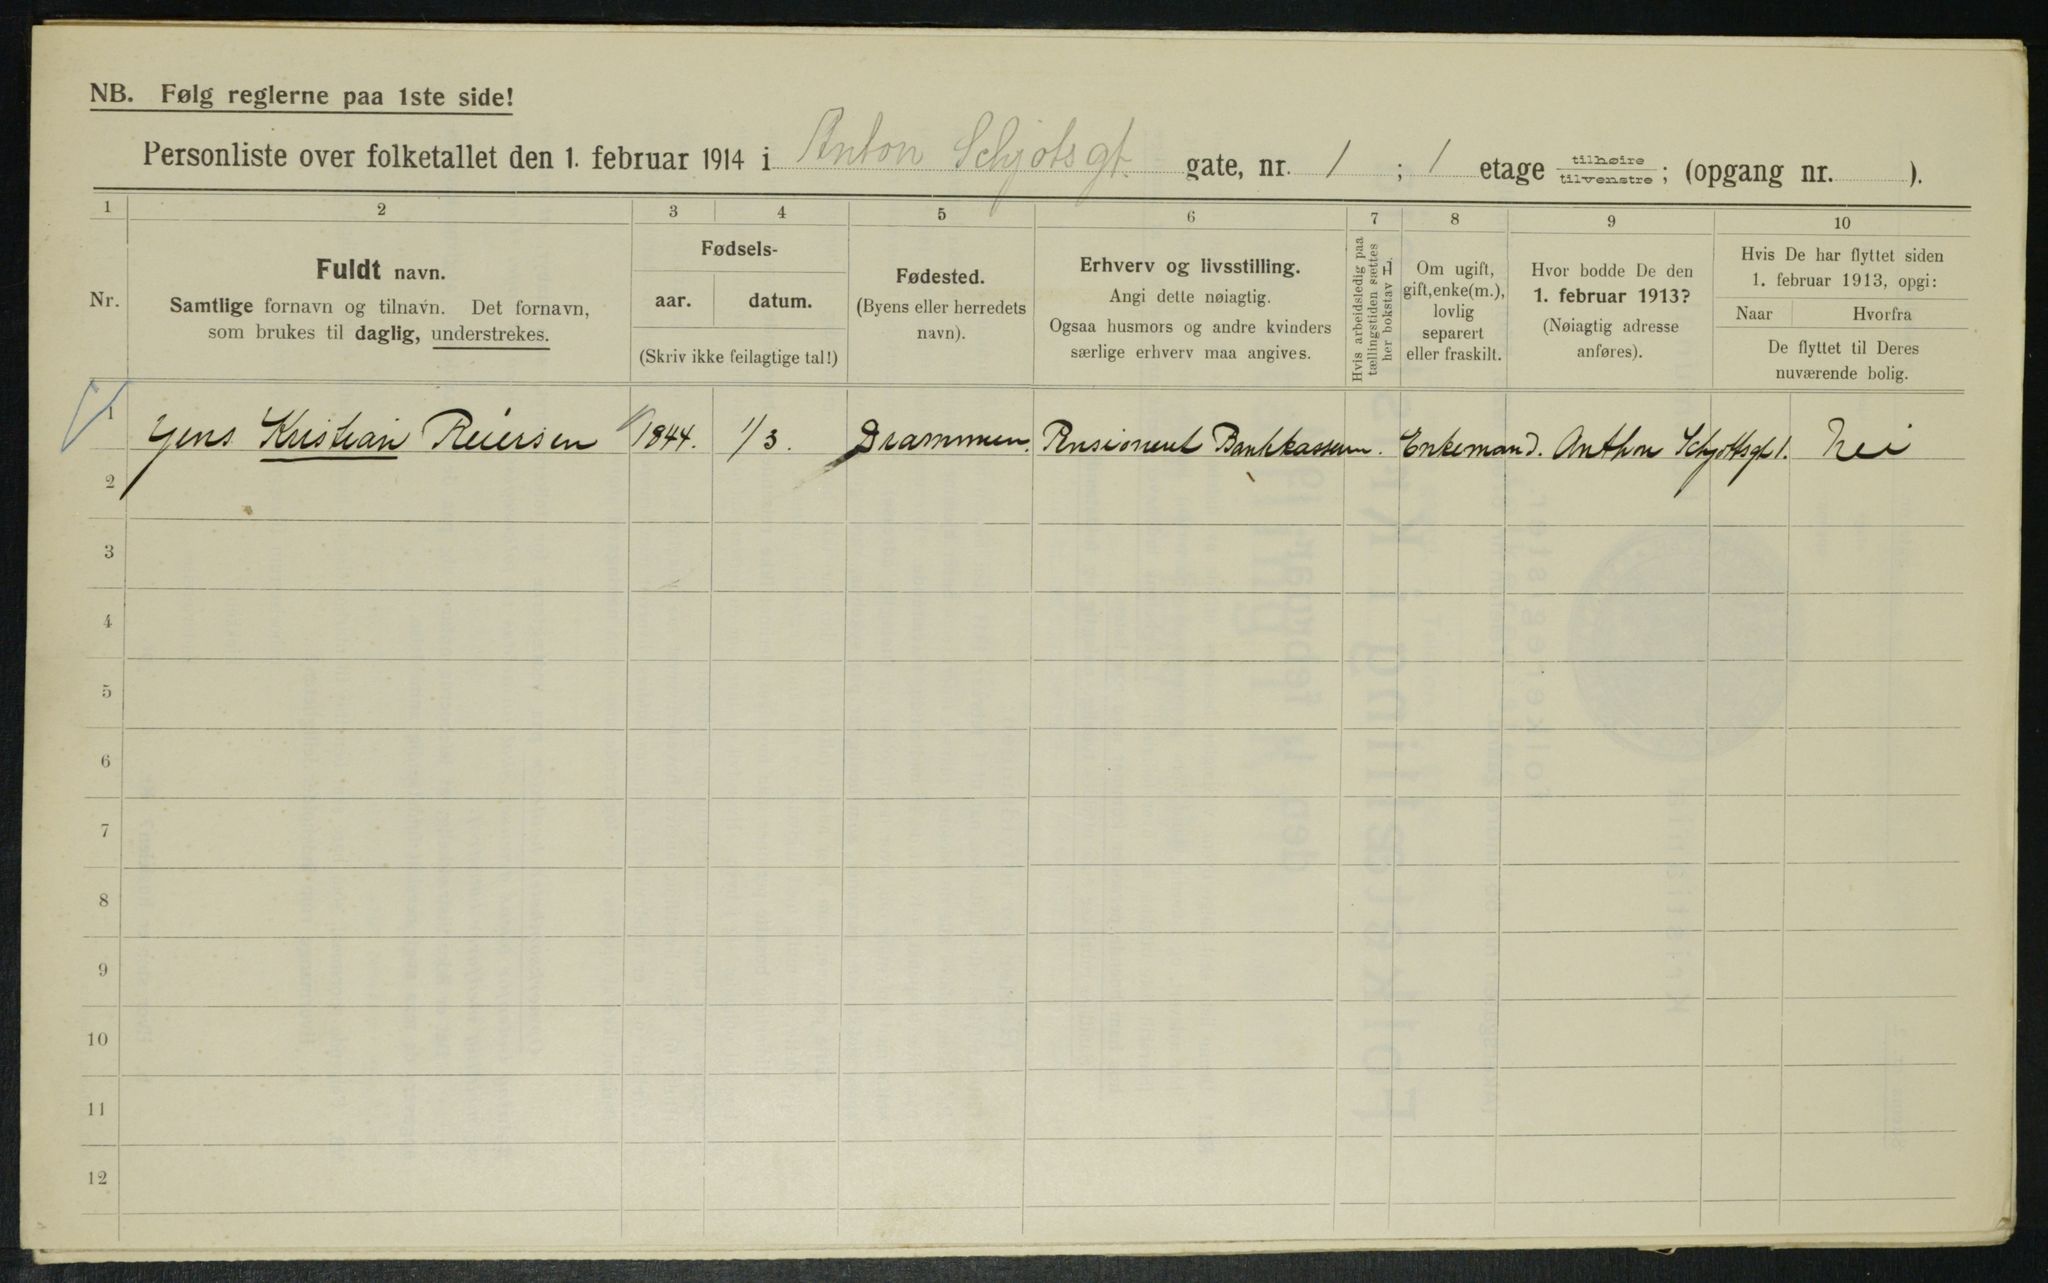 NB. Følg reglerne paa 1ste side!
Personliste over folketallet den 1. februar 1914 i Anton Schjøtsgt. gate, nr. 1 ; 1 etage tilhøire/tilvenstre ; (opgang nr. ).
1 2 3 4 5 6 7 8 9 10
Nr.
Fuldt navn.
Samtlige fornavn og tilnavn. Det fornavn,
som brukes til daglig, understrekes.
Fødsels-
aar. datum.
(Skriv ikke feilagtige tal!)
Fødested.
(Byens eller herredets
navn).
Erhverv og livsstilling.
Angi dette nøiagtig.
Ogsaa husmors og andre kvinders
særlige erhverv maa angives.
Hvis arbeidsledig paa
tællingstiden sættes
her bokstav H.
Om ugift,
gift, enke(m.),
lovlig
separert
eller fraskilt.
Hvor bodde De den
1. februar 1913?
(Nøiagtig adresse
anføres).
Hvis De har flyttet siden
1. februar 1913, opgi:
Naar Hvorfra
De flyttet til Deres
nuværende bolig.
1 Jens Kristian Reiersen 1844. 1/3. Drammen. Pensioneret Bankkasserer. Enkemand. Anthon Schjøttsgt 1. Nei
2
3
4
5
6
7
8
9
10
11
12